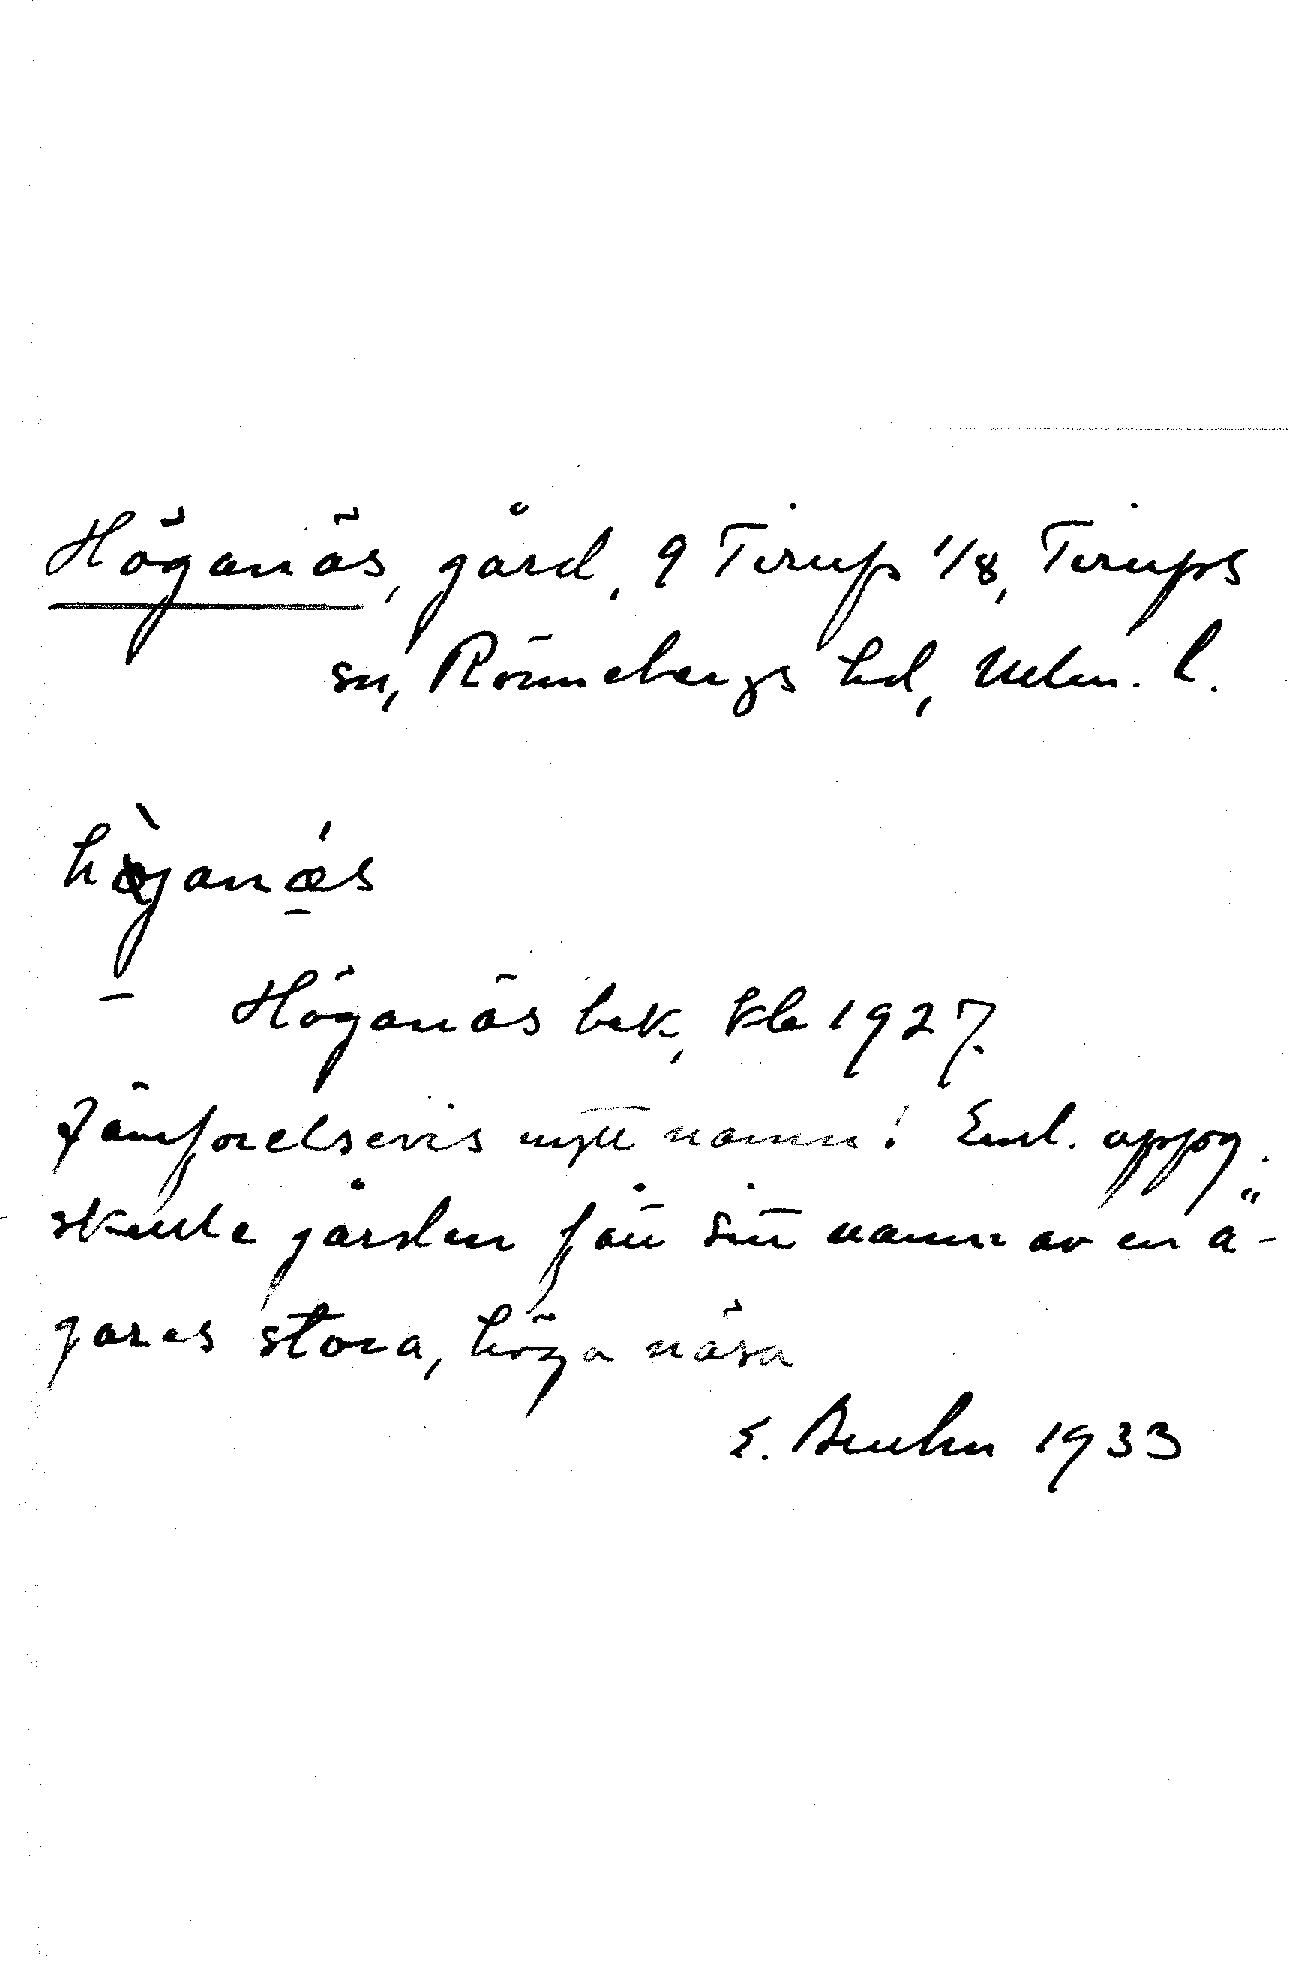 Höganäs, gård, 9 Tirup 1/8, Tirups
sn, Rönnebergs hd, Mlm. l.
höganæs
Höganäs bek, Kb 1927.
Jämförelsevis nytt namn! Enl. uppg.
skulle gården fått sitt namn av en ä-
gares stora, höga näsa
E. Bruhn 1933